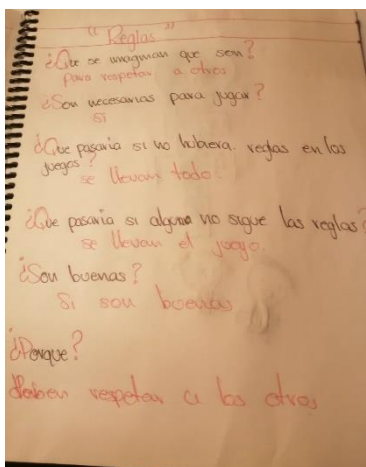 "Reglas"
¿Que se imaginan que son?
para respetar a otros
¿Son necesarias para jugar?
si
¿Que pasaria si no hubiera reglas en los
juegos?
se llevan todo.
¿Que pasaria si alguno no sigue las reglas?
se llevan el juego.
¿Son buenas?
Si son buenas
¿Porque?
deben respetar a los otros